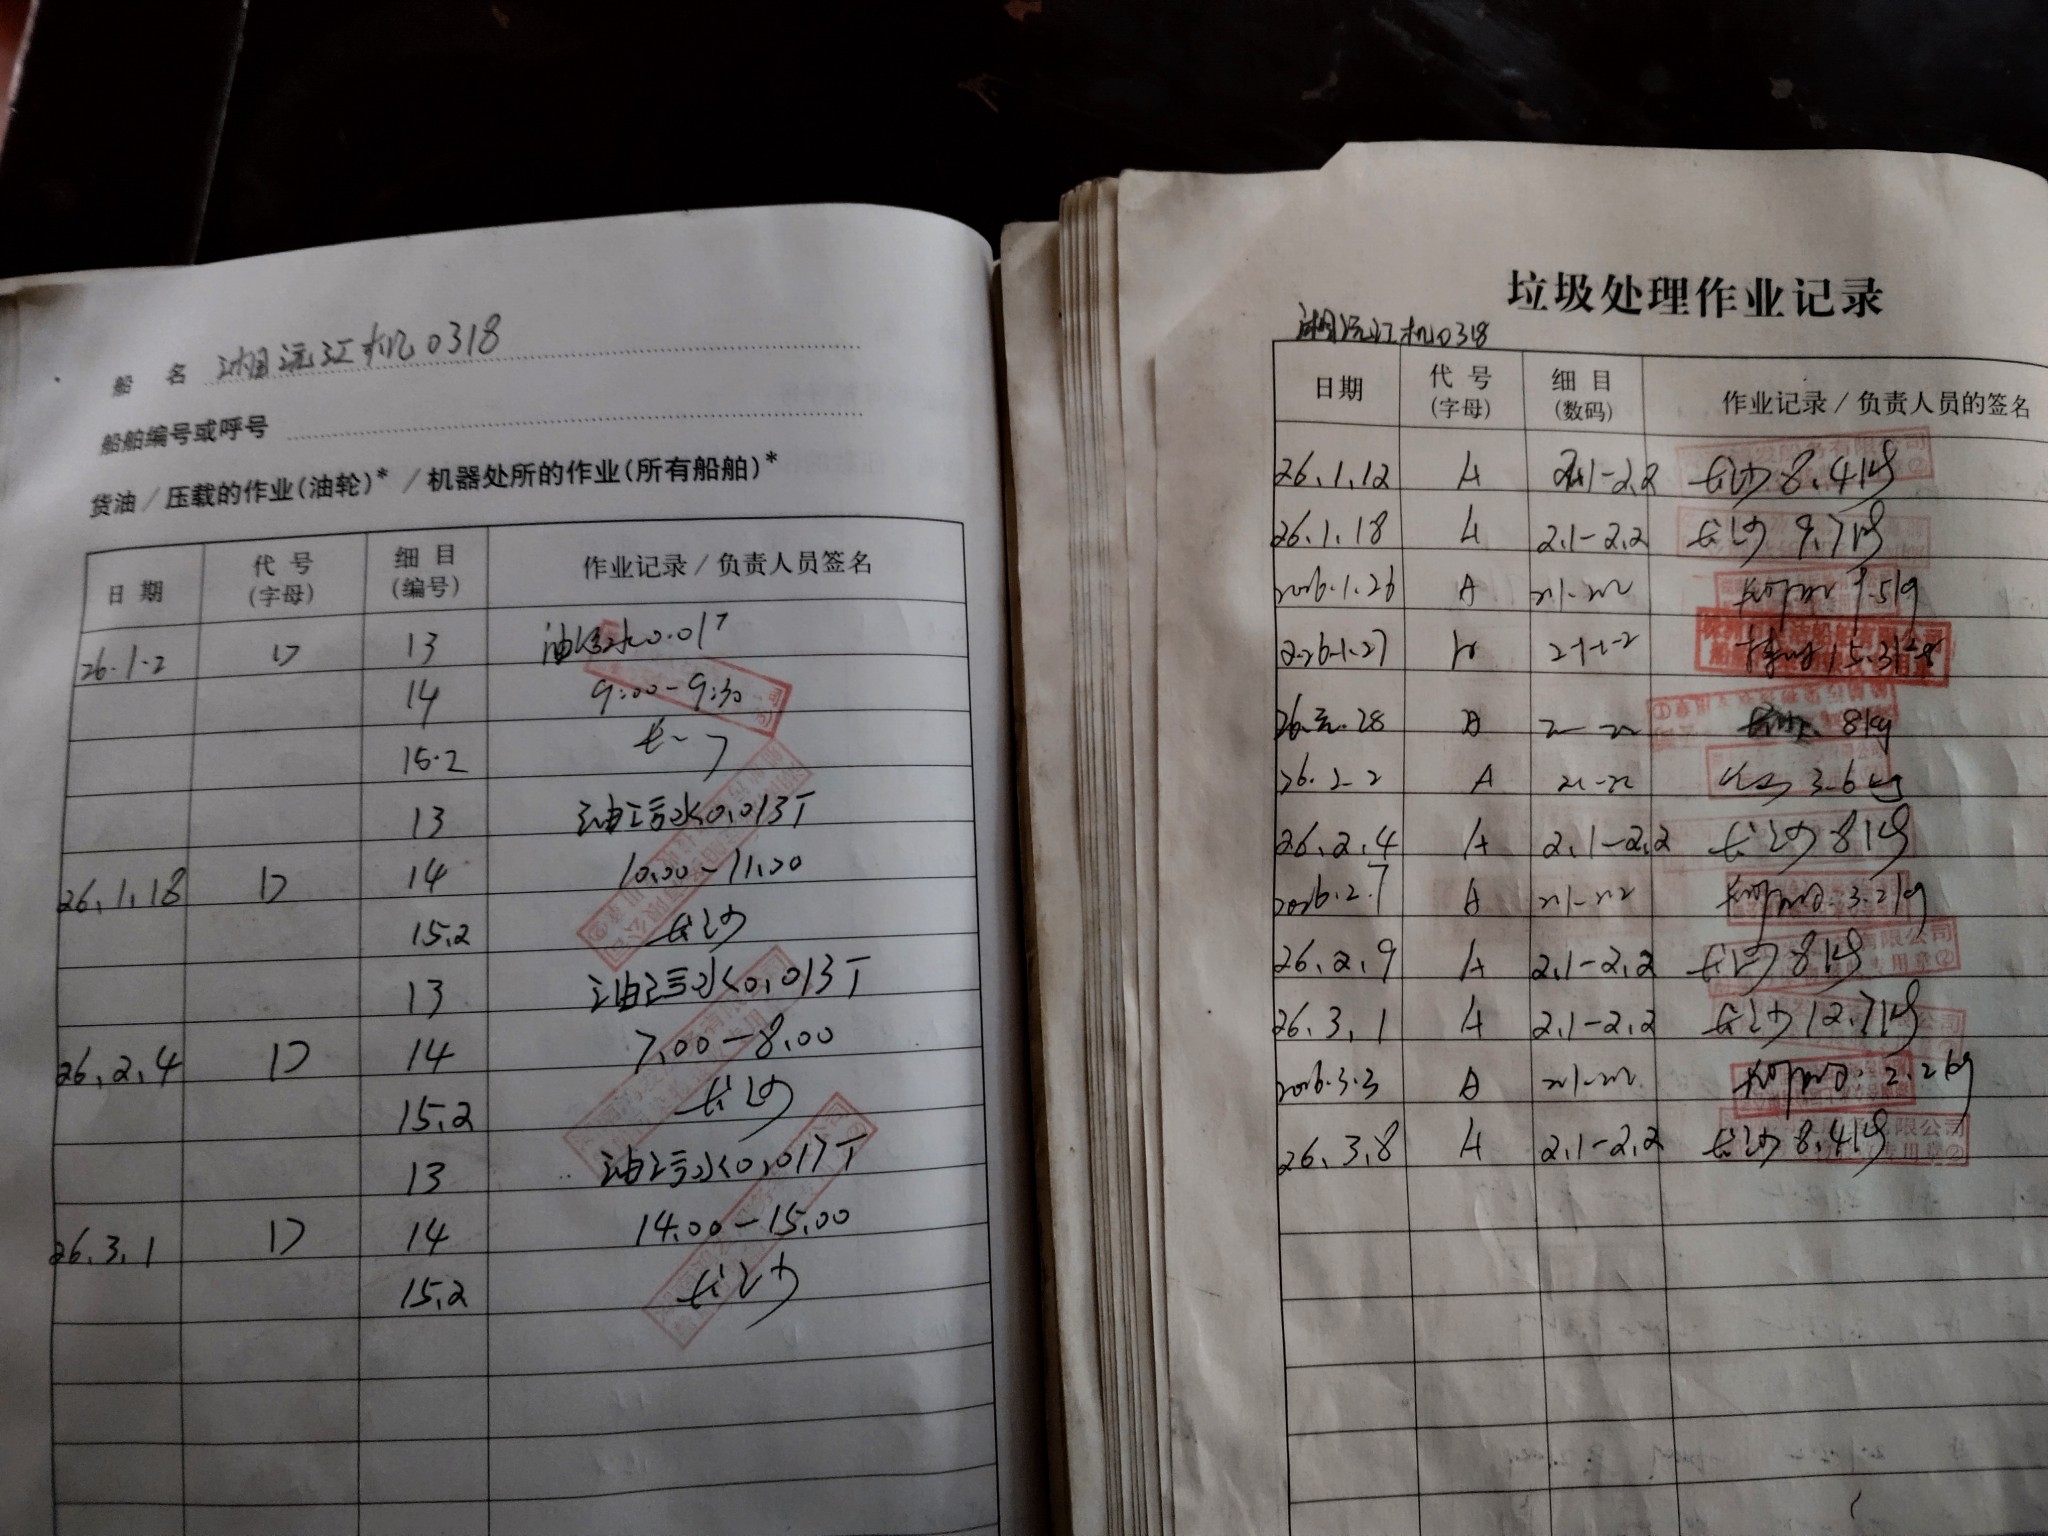 船 名 湘沅江机0318
船舶编号或呼号
货油／压载的作业(油轮)*／机器处所的作业(所有船舶)*
日 期 代 号 (字母) 细 目 (编号) 作业记录／负责人员签名
26.1.2 D 13 油污水0.01T
14 9:00-9:30
15.2
13 油污水0.013T
26.1.18 D 14 10.00-11.00
15.2 长沙
13 油污水0.013T
26.2.4 D 14 7.00-8.00
15.2 长沙
13 油污水0.017T
26.3.1 D 14 14.00-15.00
15.2 长沙
垃圾处理作业记录
湘沅江机0318
日期 代 号 (字母) 细 目 (数码) 作业记录／负责人员的签名
26.1.12 A 2.1-2.2 长沙 8.4kg
26.1.18 A 2.1-2.2 长沙 9.7kg
2026.1.26 A 2.1-2.2 1.5kg
2026.1.27 15.3kg
28 A 8kg
26.2-2 A 3.6kg
26.2.4 A 2.1-2.2 长沙 8kg
2026.2.7 A 2.1-2.2 3.2kg
26.2.9 A 2.1-2.2 长沙 8kg
26.3.1 A 2.1-2.2 长沙 12.7kg
2026.3.3 A 2.1-2.2 2.2kg
26.3.8 A 2.1-2.2 长沙 8.4kg